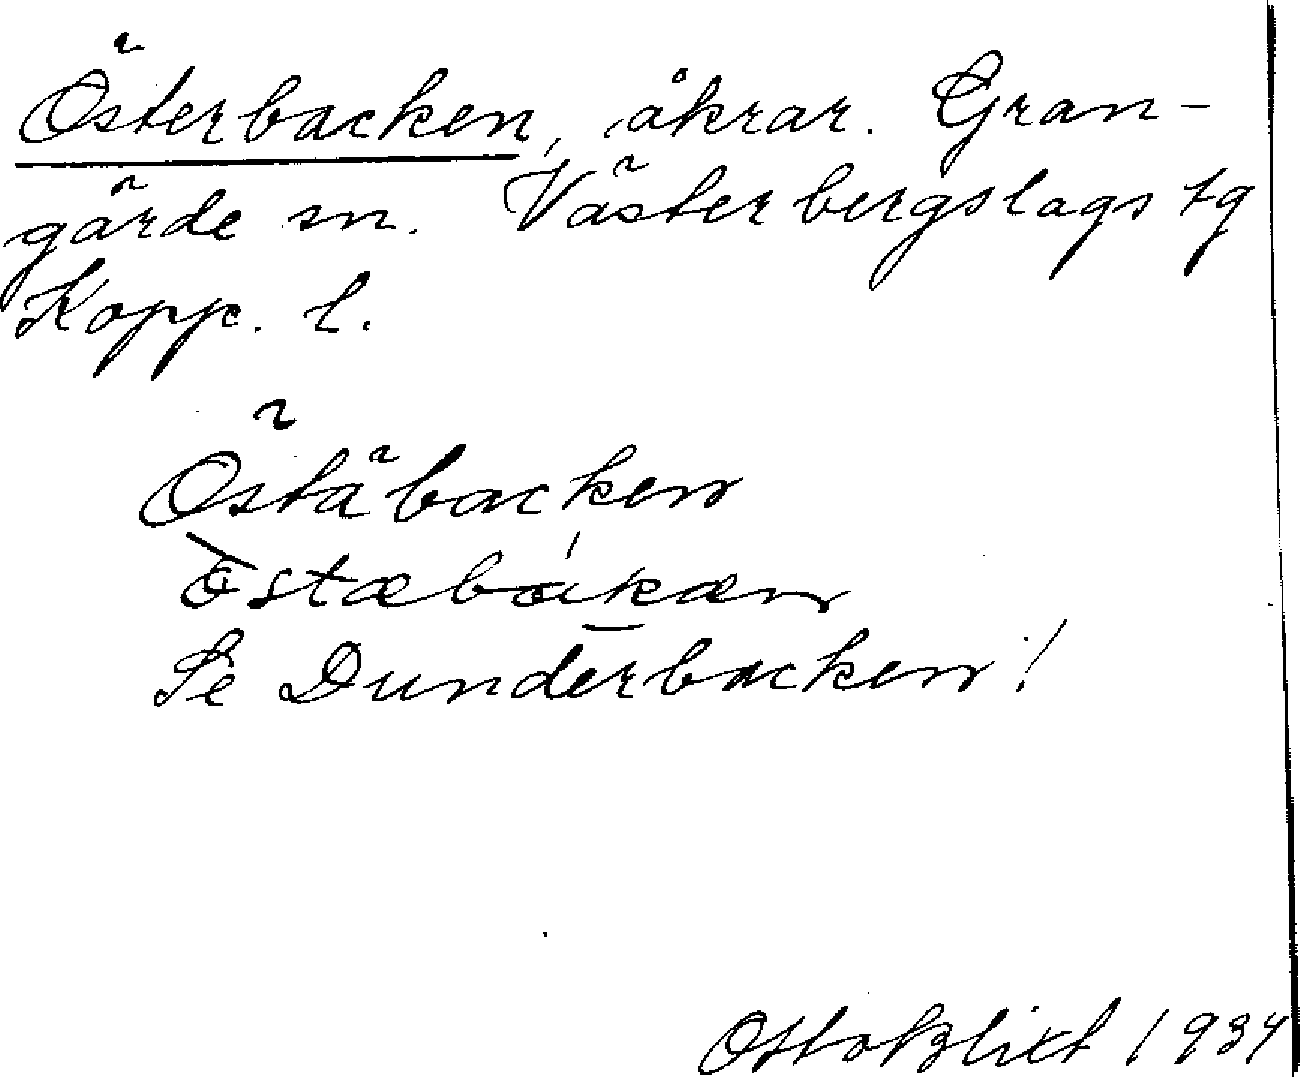 Österbacken, åkrar. Gran-
gärde sn. Västerbergslags tg
Kopp. l.
Östäbacken
östæbakæn
Se Dunderbacken!
Otto Blixt 1934